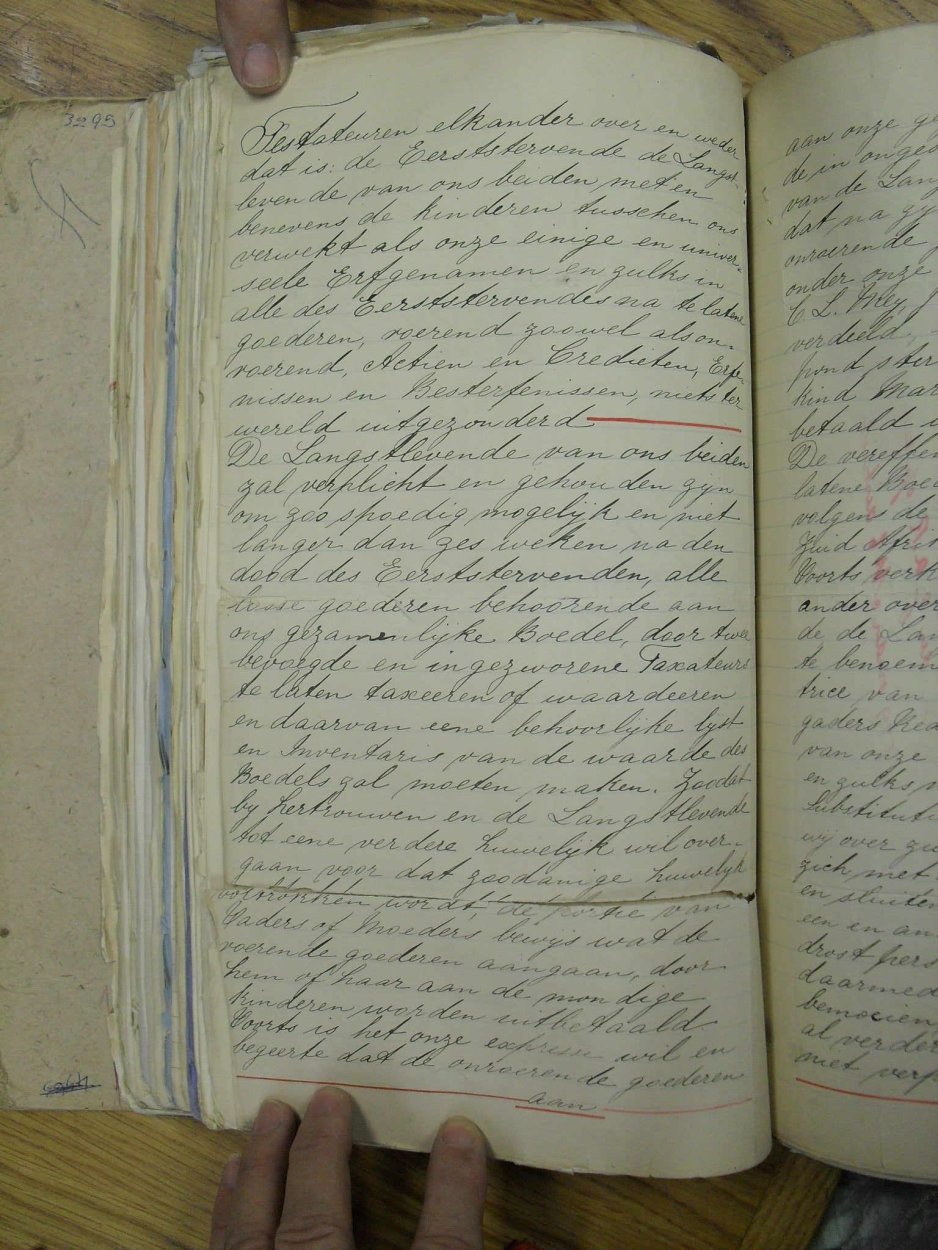 3295
Testateuren elkander over en weder
dat is: de Eerststervende de Langst-
levende van ons beiden met en
benevens de kinderen tusschen ons
verwekt als onze einige en univer-
seele Erfgenamen en zulks in
alle des Eerststervendes na te latene
goederen, roerend zoowel als on-
roerend, Actien en Credieten, Erfe-
nissen en Besterfenissen, niets ter
wereld uitgezonderd
De Langstlevende van ons beiden
zal verplicht en gehouden zyn
om zoo spoedig mogelyk en niet
langer dan zes weken na den
dood des Eerststervenden, alle
losse goederen behoorende aan
ons gezamenlijke Boedel, door twee
bevoegde en ingezworene Taxateurs
te laten taxeeren of waardeeren
en daarvan eene behoorlijke lyst
en Inventaris van de waarde des
Boedels zal moeten maken. Zoodat
by hertrouwen en de Langstlevende
tot eene verdere huwelyk wil over-
gaan voor dat zoodanige huwelyk
voltrokken wordt, de portie van
Vaders of Moeders bewijs wat de
roerende goederen aangaan, door
hem of haar aan de mondige
kinderen worden uitbetaald
Voorts is het onze expresse wil en
begeerte dat de onroerende goederen
aan
aan onze
de in
van de
dat na
onroerende
onder onze
C. L. Mey,
verdeeld,
pond
kind
betaald
De
latene
volgens de
Zuid
Voorts
ander over
de de
te
trice van
gaders
van onze
en zulks
wij over
zich met
en
een in an
drost
al
niet